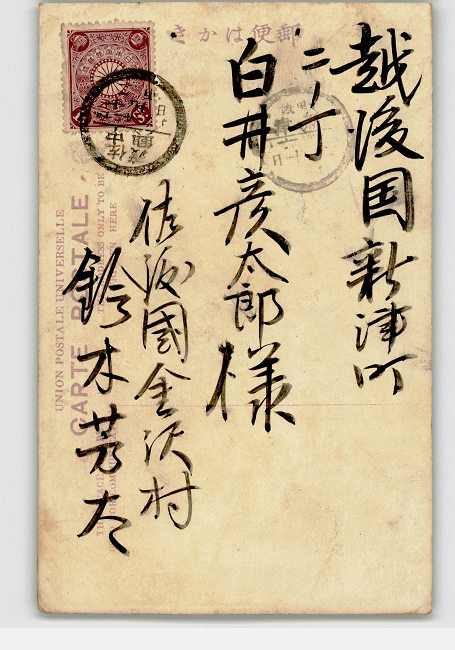 郵便はかき
越後国新津町
二ノ丁
白井彦太郎様
佐渡國金沢村
鈴木芳太
UNION POSTALE UNIVERSELLE
CARTE POSTALE